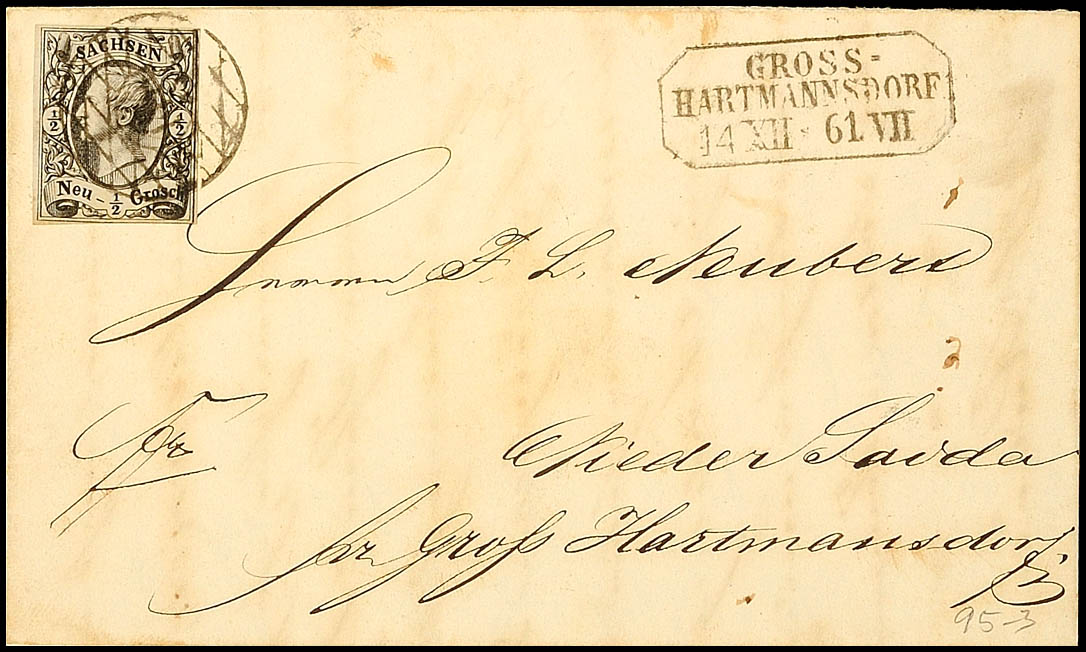 SACHSEN
½ ½
Neu - ½ Grosch
GROSS-
HARTMANNSDORF
14 XII 61 VII
Herrn F. L. Neubert
Fr
Nieder Saida
pr Groß Hartmansdorf
95-3